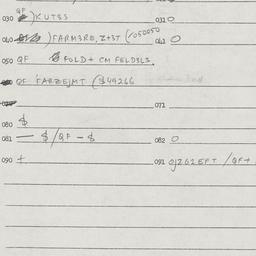 QF
030 )KUT3S 031 O
040 )FARM3RE,Z+3T (/050050 041 O
050 QF FOLD+ CM FELD3LS
QF FARZEJMT ($49266
071
080 $
081 — $/QF – $ 082 O
090 + 091 OJZ62EFT /QF+